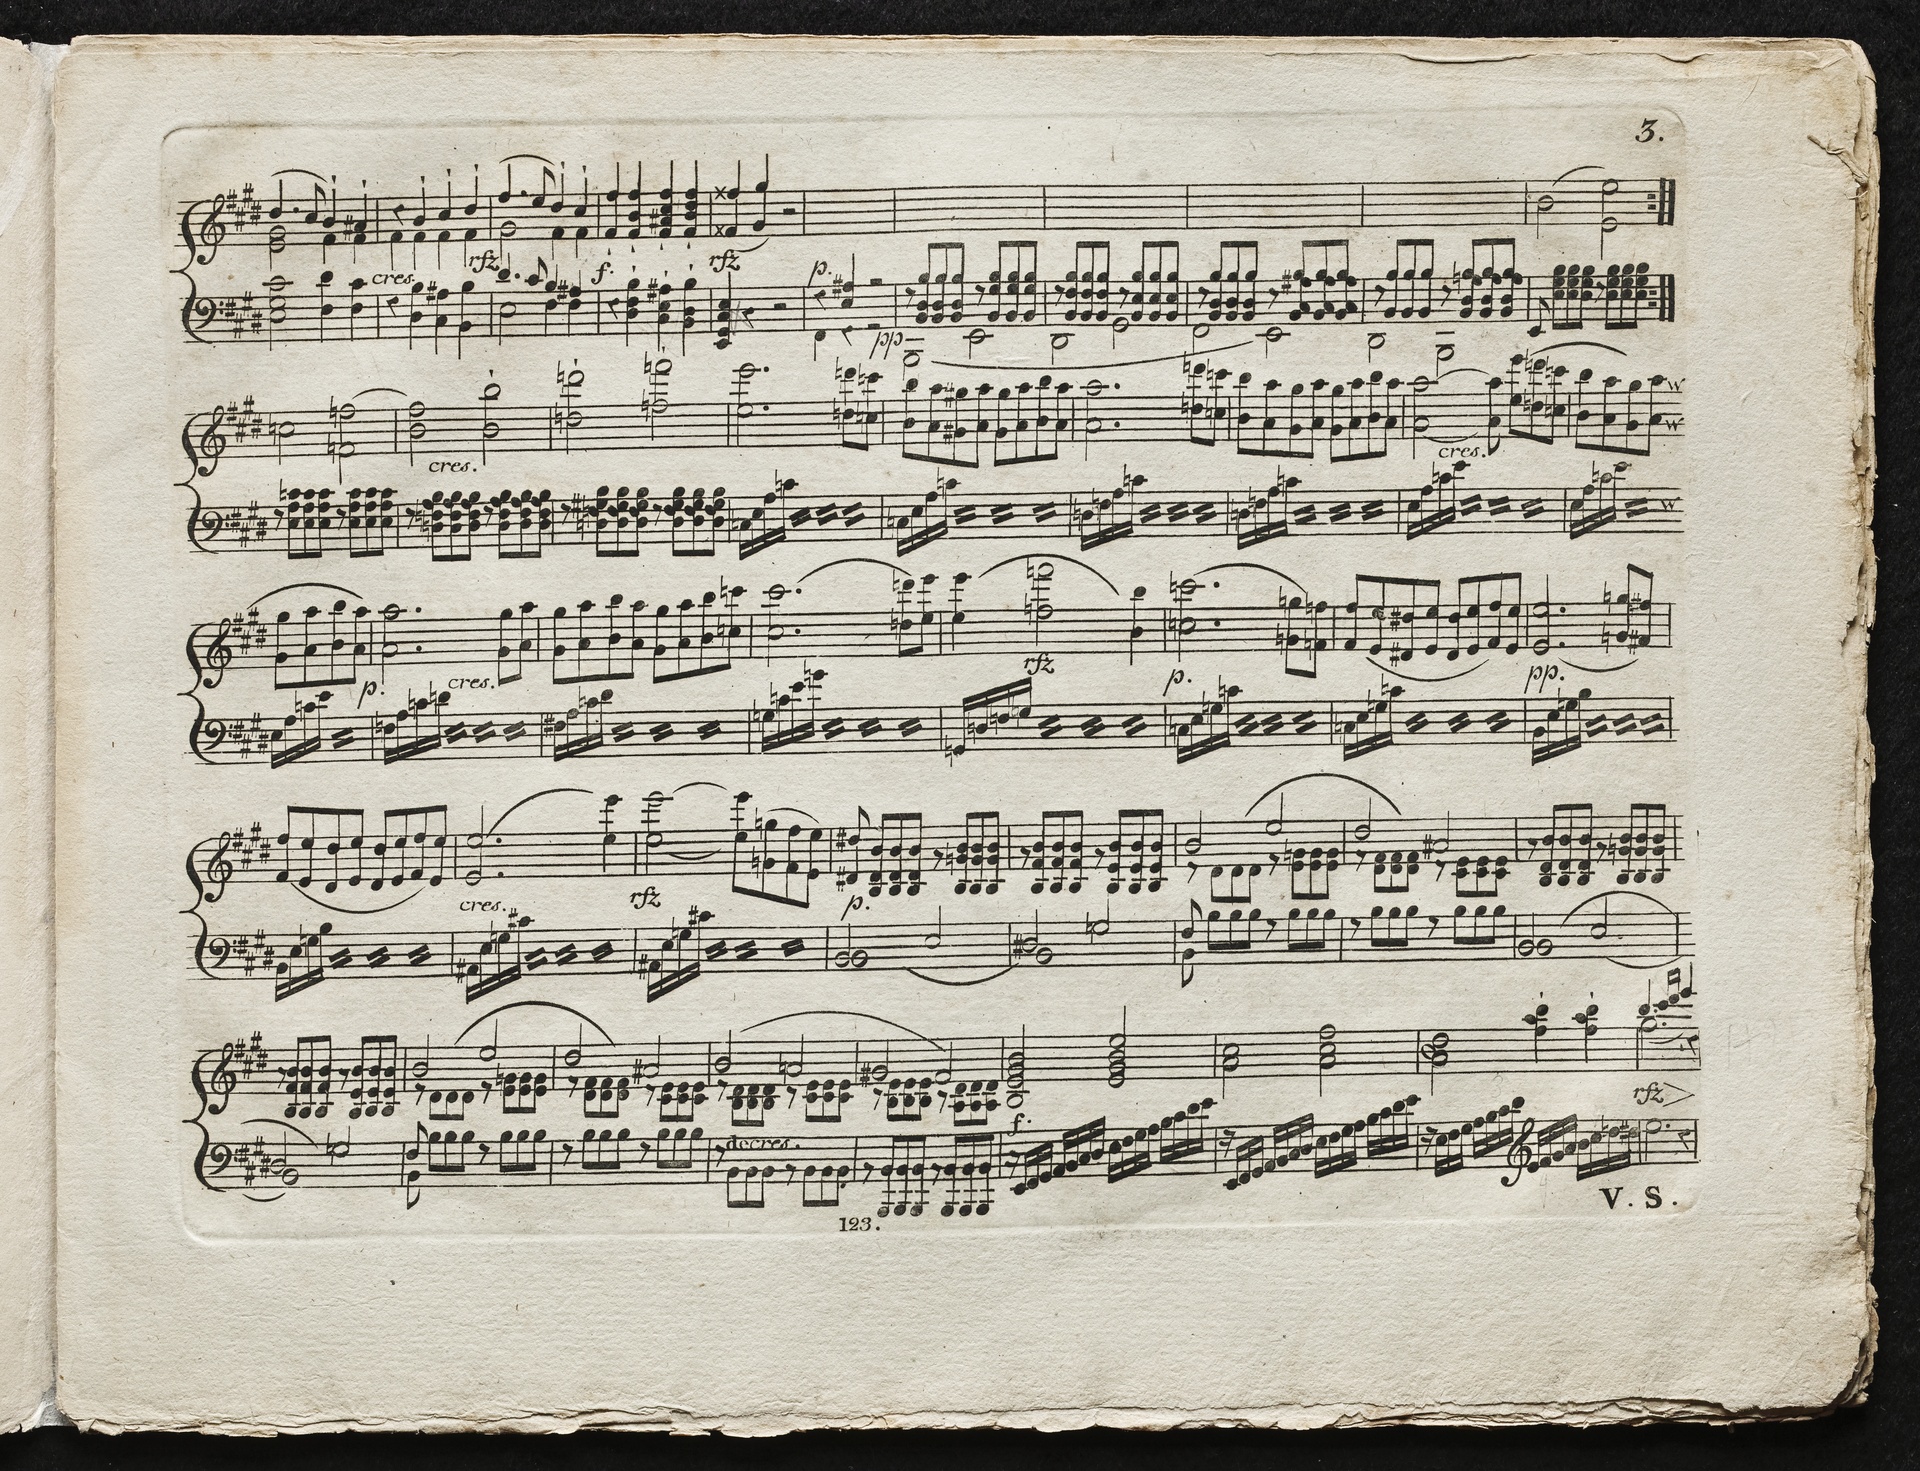 3.
cres. rfz f. rfz p. pp
cres. cres.
p. cres. rfz p. pp.
cres. rfz p.
rfz
decres. f.
V. S.
123.